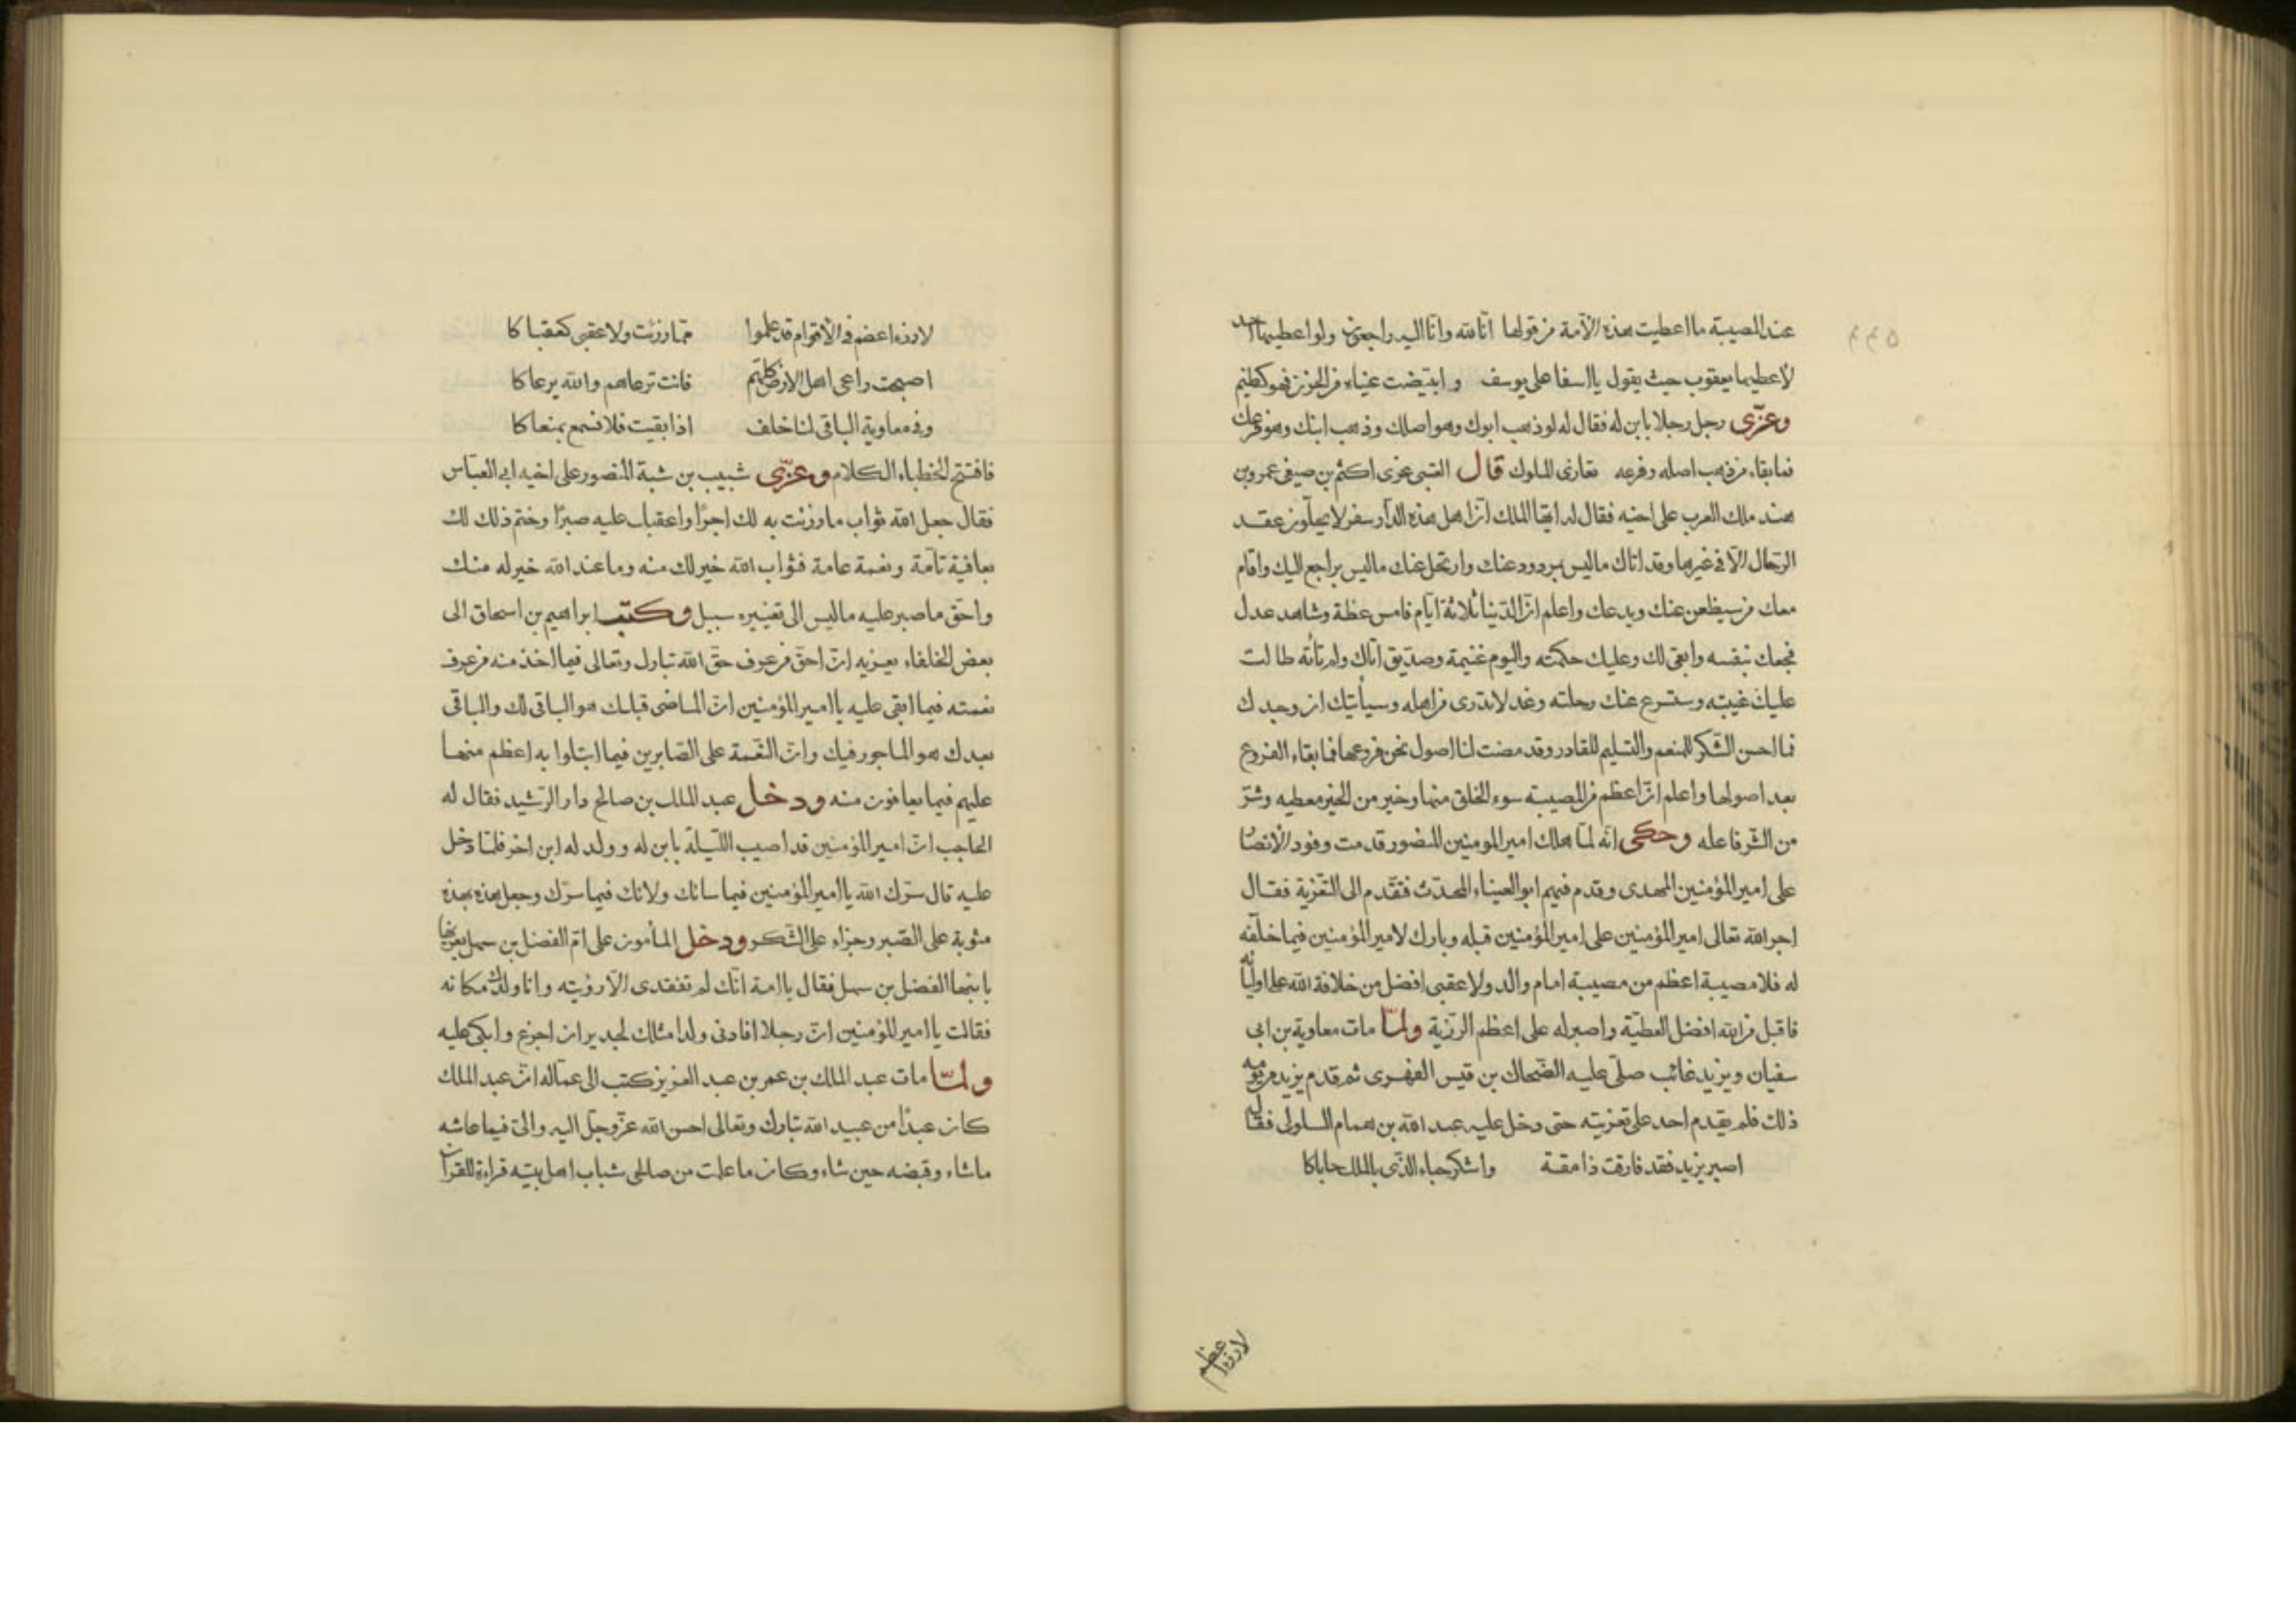 عند المصيبة ما اعطيت هذه الأمة من قولها انا لله وانا اليه راجعون ولو اعطيها احد
لأعطيها يعقوب حيث يقول يا اسفا على يوسف وابيضت عيناه من الحزن فهو كظيم
وعزّى رجل رجلا بابن له فقال له لو ذهب ابوك وهو اصلك وذهب ابنك وهو فرعك
فما بقاء من ذهب اصله وفرعه تعازى الملوك قال العتبى عزى اكثم بن صيفى عمرو بن
هند ملك العرب على اخيه فقال له ايها الملك ان اهل هذه الدار سفر لا يحلّون عقد
الرحال الّا فى غيرها وقد اتاك ما ليس بمردود عنك وارتحل عنك ما ليس براجع اليك واقام
معك من سيظعن عنك ويدعك واعلم انّ الدّنيا ثلاثة ايّام فامس عظة وشاهد عدل
فجعك بنفسه وابقى لك وعليك حكمته واليوم غنيمة وصديق اتاك ولم تأته طالت
عليك غيبته وستسرع عنك رحلته وغد لا تدرى من اهله وسيأتيك ان وجدك
فما احسن الشّكر للمنعم والتسليم للقادر وقد مضت لنا اصول نحن فروعها فما بقاء الفروع
بعد اصولها واعلم انّ اعظم من المصيبة سوء الخلق منها وخير من الخير معطيه وشرّ
من الشّر فاعله وحكى انّه لمّا هلك امير المومنين المنصور قدمت وفود الأنصا
على امير المؤمنين المهدى وقدم فيهم ابو العيناء المحدّث فتقدم الى التّعزية فقال
اجر الله تعالى امير المؤمنين على امير المؤمنين قبله وبارك لامير المؤمنين فيما خلّفه
له فلا مصيبة اعظم من مصيبة امام والد ولا عقبى افضل من خلافة الله على اوليائه
فاقبل من الله افضل العطيّة واصبر له على اعظم الرّزية ولمّا مات معاوية بن ابى
سفيان ويزيد غائب صلّى عليه الضّحاك بن قيس الفهرى ثم قدم يزيد من يومه
ذلك فلم يقدم احد على تعزيته حتى دخل عليه عبد الله بن همام السلولى فقال
اصبر يزيد فقد فارقت ذا مقة واشكر حباء الذّى بالملك حاباكا
لا رزء اعظم
لا رزء اعضم فى الأقوام قد علموا ممّا رزئت ولا عقبى كعقباكا
اصبحت راعى اهل الارض كلهم فانت ترعاهم والله يرعاكا
وفى معاوية الباقى لنا خلف اذا بقيت فلا نسمع بمنعاكا
فافتتح الخطباء الكلام وعزّى شبيب بن شبة المنصور على اخيه ابى العبّاس
فقال جعل الله ثواب ما رزئت به لك اجرًا واعقبك عليه صبرًا وختم ذلك لك
بعافية تامّة ونعمة عامة فثواب الله خير لك منه وما عند الله خير له منك
واحق ما صبر عليه ما ليس الى تغييره سبيل وكتب ابراهيم بن اسحاق الى
بعض الخلفاء يعزيه انّ احق من عرف حقّ الله تبارك وتعالى فيما اخذ منه من عرف
نعمته فيما ابقى عليه يا امير المؤمنين انّ الماضى قبلك هو الباقى لك والباقى
بعدك هو الماجور فيك وانّ النّعمة على الصّابرين فيما ابتلوا به اعظم منها
عليهم فيما يعافون منه ودخل عبد الملك بن صالح دار الرّشيد فقال له
الحاجب انّ امير المؤمنين قد اصيب اللّيلة بابن له وولد له ابن اخر فلمّا دخل
عليه قال سرّك الله يا امير المؤمنين فيما سائك ولا سائك فيما سرّك وجعل هذه بهذه
مثوبة على الصّبر وجزاء على الشّكر ودخل المأمون على امّ الفضل بن سهل يعزيها
بابنها الفضل بن سهل فقال يا امة انّك لم تفتقدى الّا رؤيته وانا ولدك مكانه
فقالت يا امير المؤمنين انّ رجلا افادنى ولدا مثلك لجدير ان اجزع وابكى عليه
ولمّا مات عبد الملك بن عمر بن عبد العزيز كتب الى عمّاله انّ عبد الملك
كان عبدًا من عبيد الله تبارك وتعالى احسن الله عزّ وجلّ اليه والىّ فيما عاشه
ما شاء وقبضه حين شاء وكان ما علمت من صالحى شباب اهل بيته قراءة للقرآن